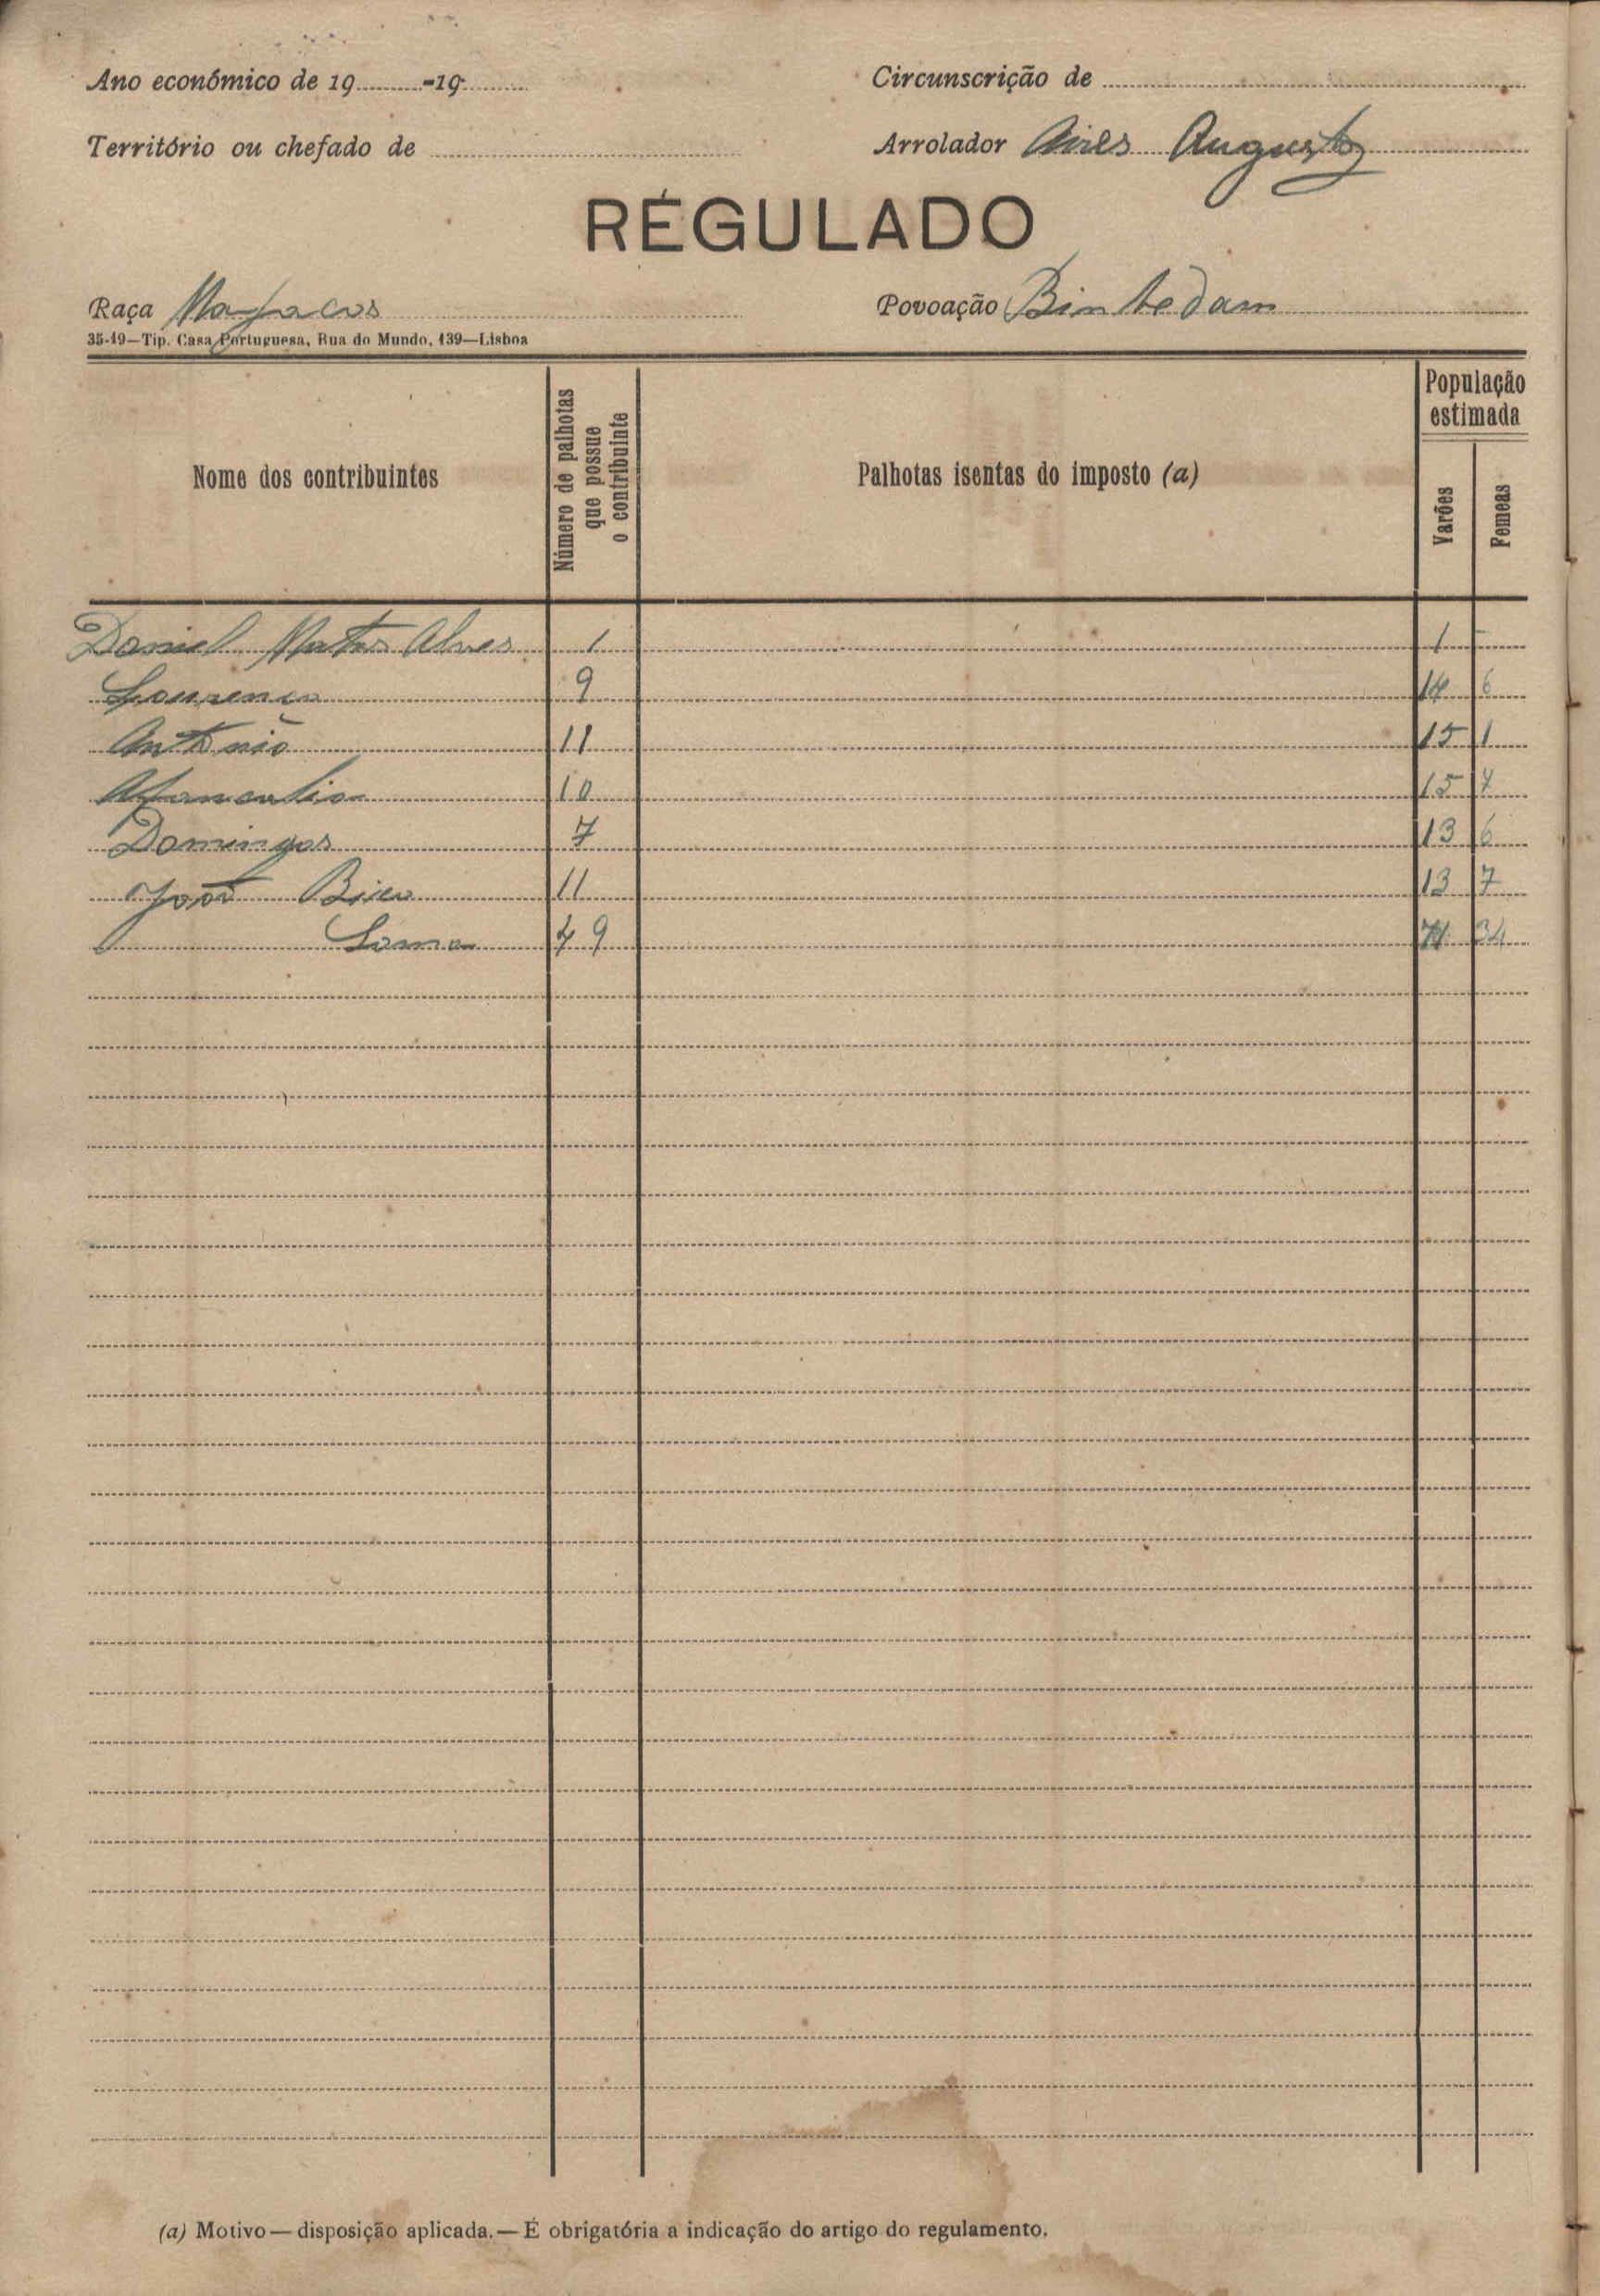 Ano económico de 19 -19
Circunscrição de
Território ou chefado de
Arrolador Aires Augusto
RÉGULADO
Raça
Povoação Bintedam
35-19—Tip. Casa Portuguesa, Rua do Mundo, 139—Lisboa
Nome dos contribuintes
Número de palhotas que possue o contribuinte
Palhotas isentas do imposto (a)
População estimada
Varões
Femeas
Daniel Matos Alves 1 1 -
Lourenço 9 14 6
António 11 15 1
10 15 7
Domingos 7 13 6
João 11 13 7
Soma 49 71 34
(a) Motivo—disposição aplicada.—É obrigatória a indicação do artigo do regulamento.